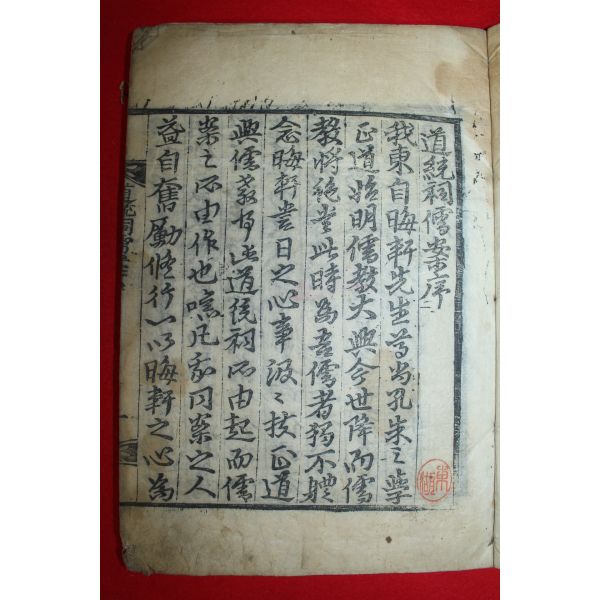 道統祠儒案序
我東自晦軒先生尊尚孔朱之學
正道始明儒教大興今世降而儒
教將絶當此時為吾儒者獨不體
念晦軒當日之心事汲〻扶正道
興儒教乎此道統祠所由起而儒
案之所由作也噫凡我同案之人
益自奮勵修行一以晦軒之心為